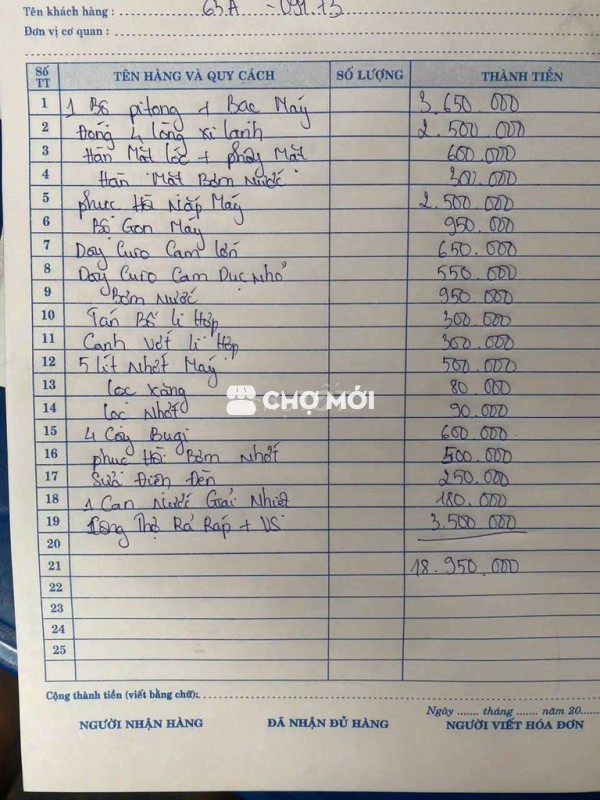 Tên khách hàng : 63A - 091.13
Đơn vị cơ quan :
Số TT TÊN HÀNG VÀ QUY CÁCH SỐ LƯỢNG THÀNH TIỀN
1 1 Bộ pitong + Bac Máy 3.650.000
2 Đóng 4 lòng xi lanh 2.500.000
3 Hàn Mặt lóc + phay Mặt 600.000
4 Hàn Mặt Bơm Nước 300.000
5 phục Hồi Nắp Máy 2.500.000
6 Bộ Gon Máy 950.000
7 Dây Curo Cam lớn 650.000
8 Dây Curo Cam Dục Nhỏ 550.000
9 Bơm Nước 950.000
10 Tán Bố li Hợp 300.000
11 Canh Vớt li Hợp 300.000
12 5 lít Nhớt Máy 500.000
13 lọc xăng 80.000
14 lọc Nhớt 90.000
CHỢ MỚI
15 4 Cây Bugi 600.000
16 phục Hồi Bơm Nhớt 500.000
17 Sửa Điện Đèn 250.000
18 1 Can Nước Giải Nhiệt 180.000
19 Công Thợ Rả Ráp + VS 3.500.000
20
21 18.950.000
22
23
24
25
Cộng thành tiền (viết bằng chữ):
Ngày ....... tháng ....... năm 20.....
NGƯỜI NHẬN HÀNG ĐÃ NHẬN ĐỦ HÀNG NGƯỜI VIẾT HÓA ĐƠN